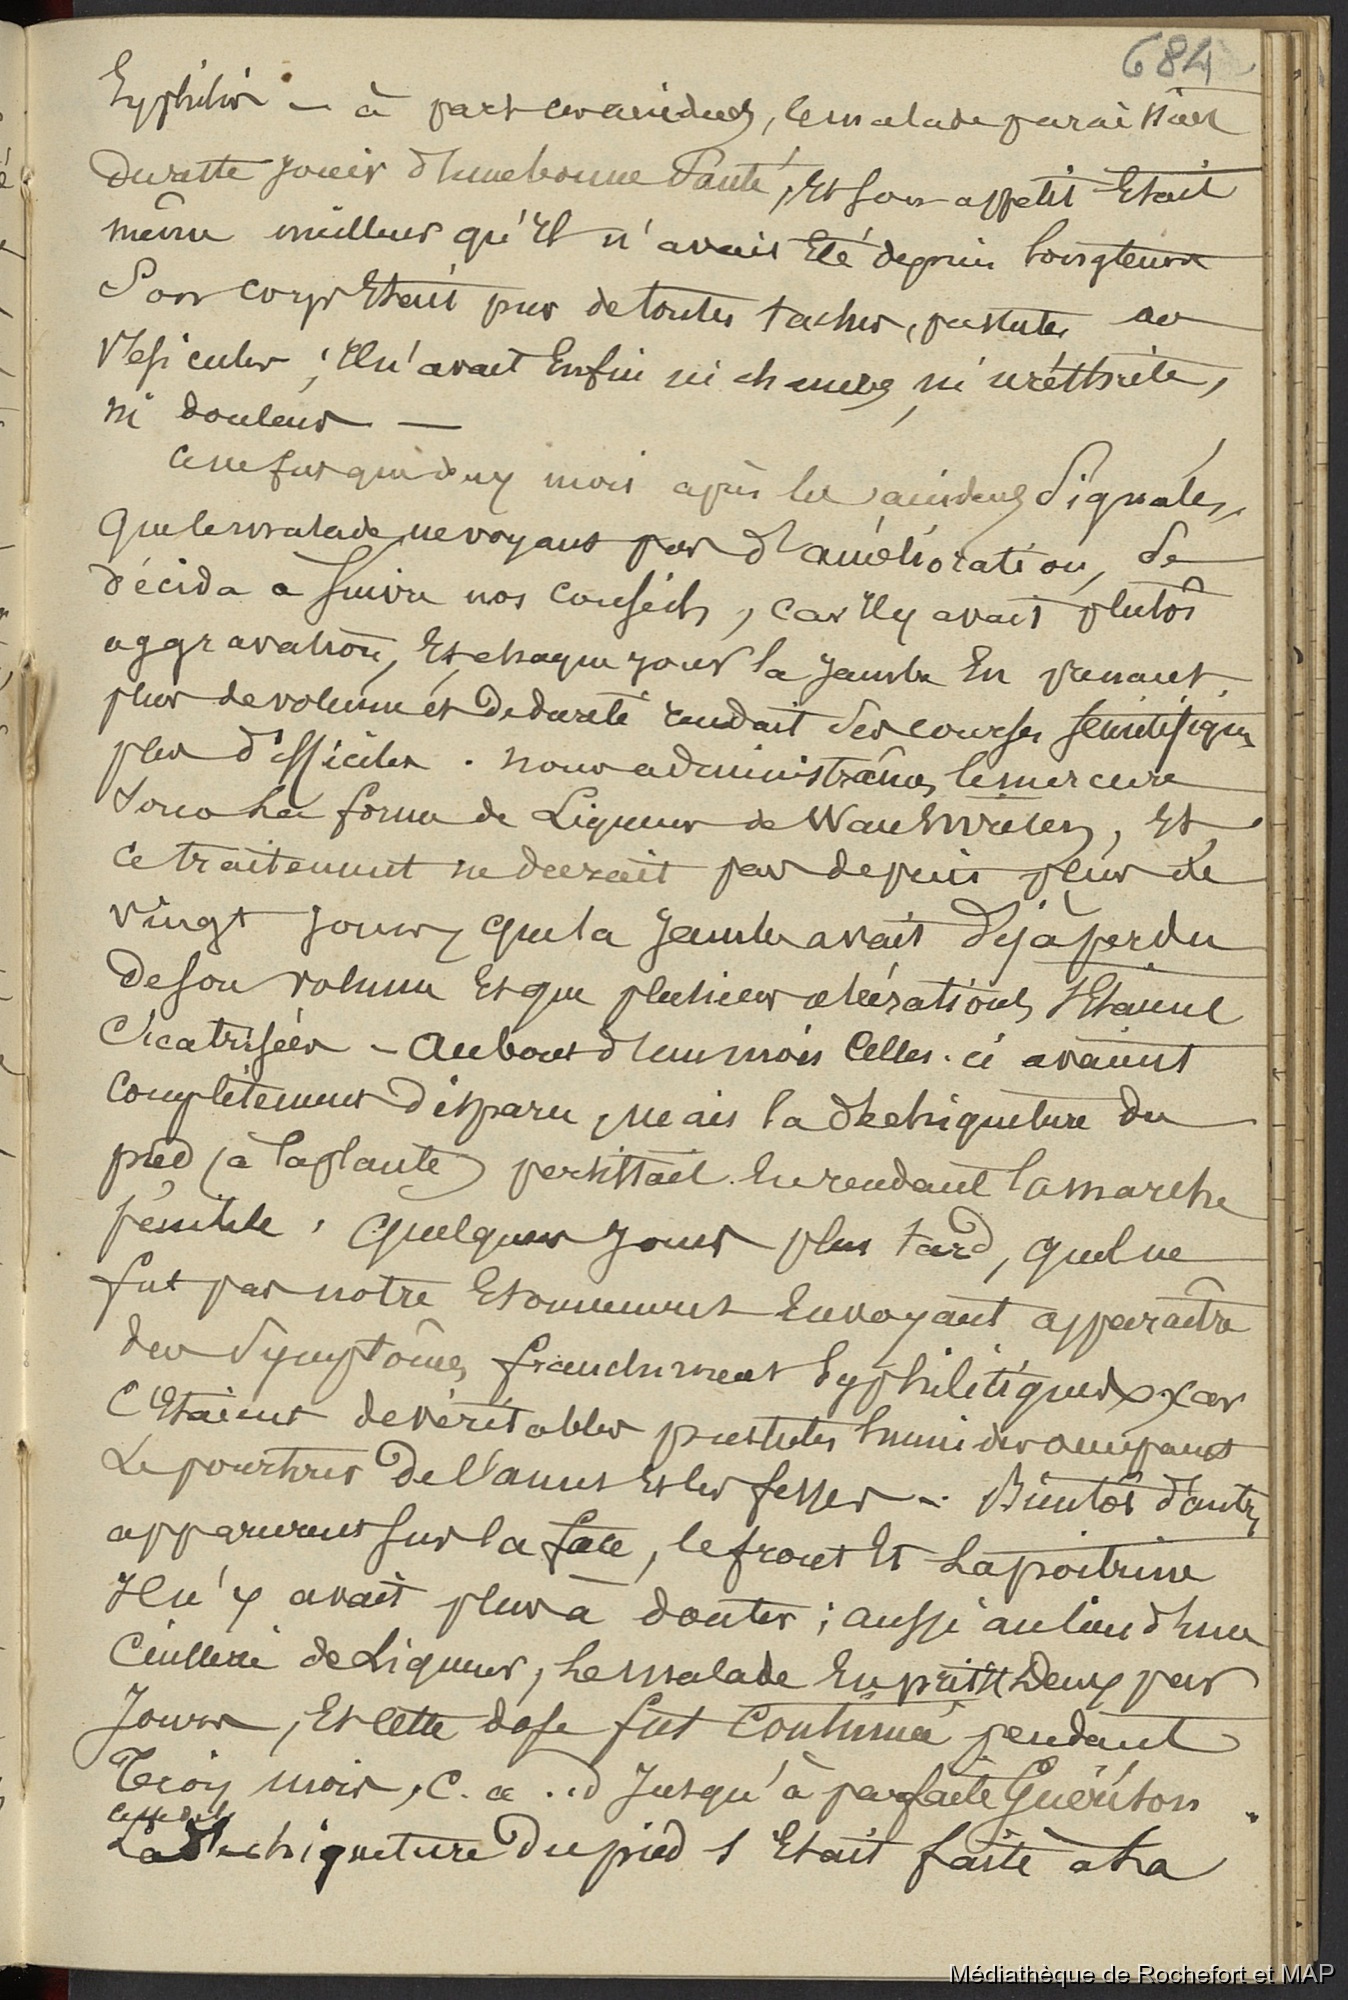 684
Syphilis – à part ces accidents, le malade paraissait
du reste jouir d'une bonne Santé, Et son appétit Etait
même meilleur qu'Il n'avait Eté depuis longtems
Son corps Etait pur de toutes taches, pustules ou
Vésicules ; Il n'avait Enfin ni chancres, ni uréthrite,
ni douleurs —
Ce ne fut que deux mois après les accidents Signalés,
que le malade ne voyant pas d'amélioration, Se
décida à Suivre nos Conseils, car Il y avait plutôt
aggravation, Et chaque jour la Jambe En prenant
plus de volume et De dureté rendait Ses courses scientifiques
plus difficiles . Nous administrâmes le mercure
Sous La forme de Liqueur de Wan Swieten, Et
ce traitement ne durait pas depuis plus de
vingt Jours, que la Jambe avait Déjà perdu
De son volume Et que plusieurs ulcérations s'Etaient
Cicatrisées – Au bout d'un mois Celles-ci avaient
Complètement Disparu, mais la déchiqueture du
pied (à la plante) persistait En rendant la marche
pénible . Quelques Jours plus tard, quel ne
fut pas notre Etonnement En voyant apparaître
des Symptômes franchement Syphilitiques, car
C'Etaient de véritables pustules humides occupant
Le pourtour De l'anus Et les fesses – Bientôt d'autres
apparurent Sur la face, le front Et La poitrine
Il n'y avait plus à douter ; aussi au lieu d'une
Cuillerée de Liqueur, Le malade En prit Deux par
Jour, Et cette dose fut Continuée pendant
Trois mois, C. a. .d Jusqu'à parfaite Guérison
La déchiqueture Du pied s'Etait faite à La
Médiathèque de Rochefort et MAP